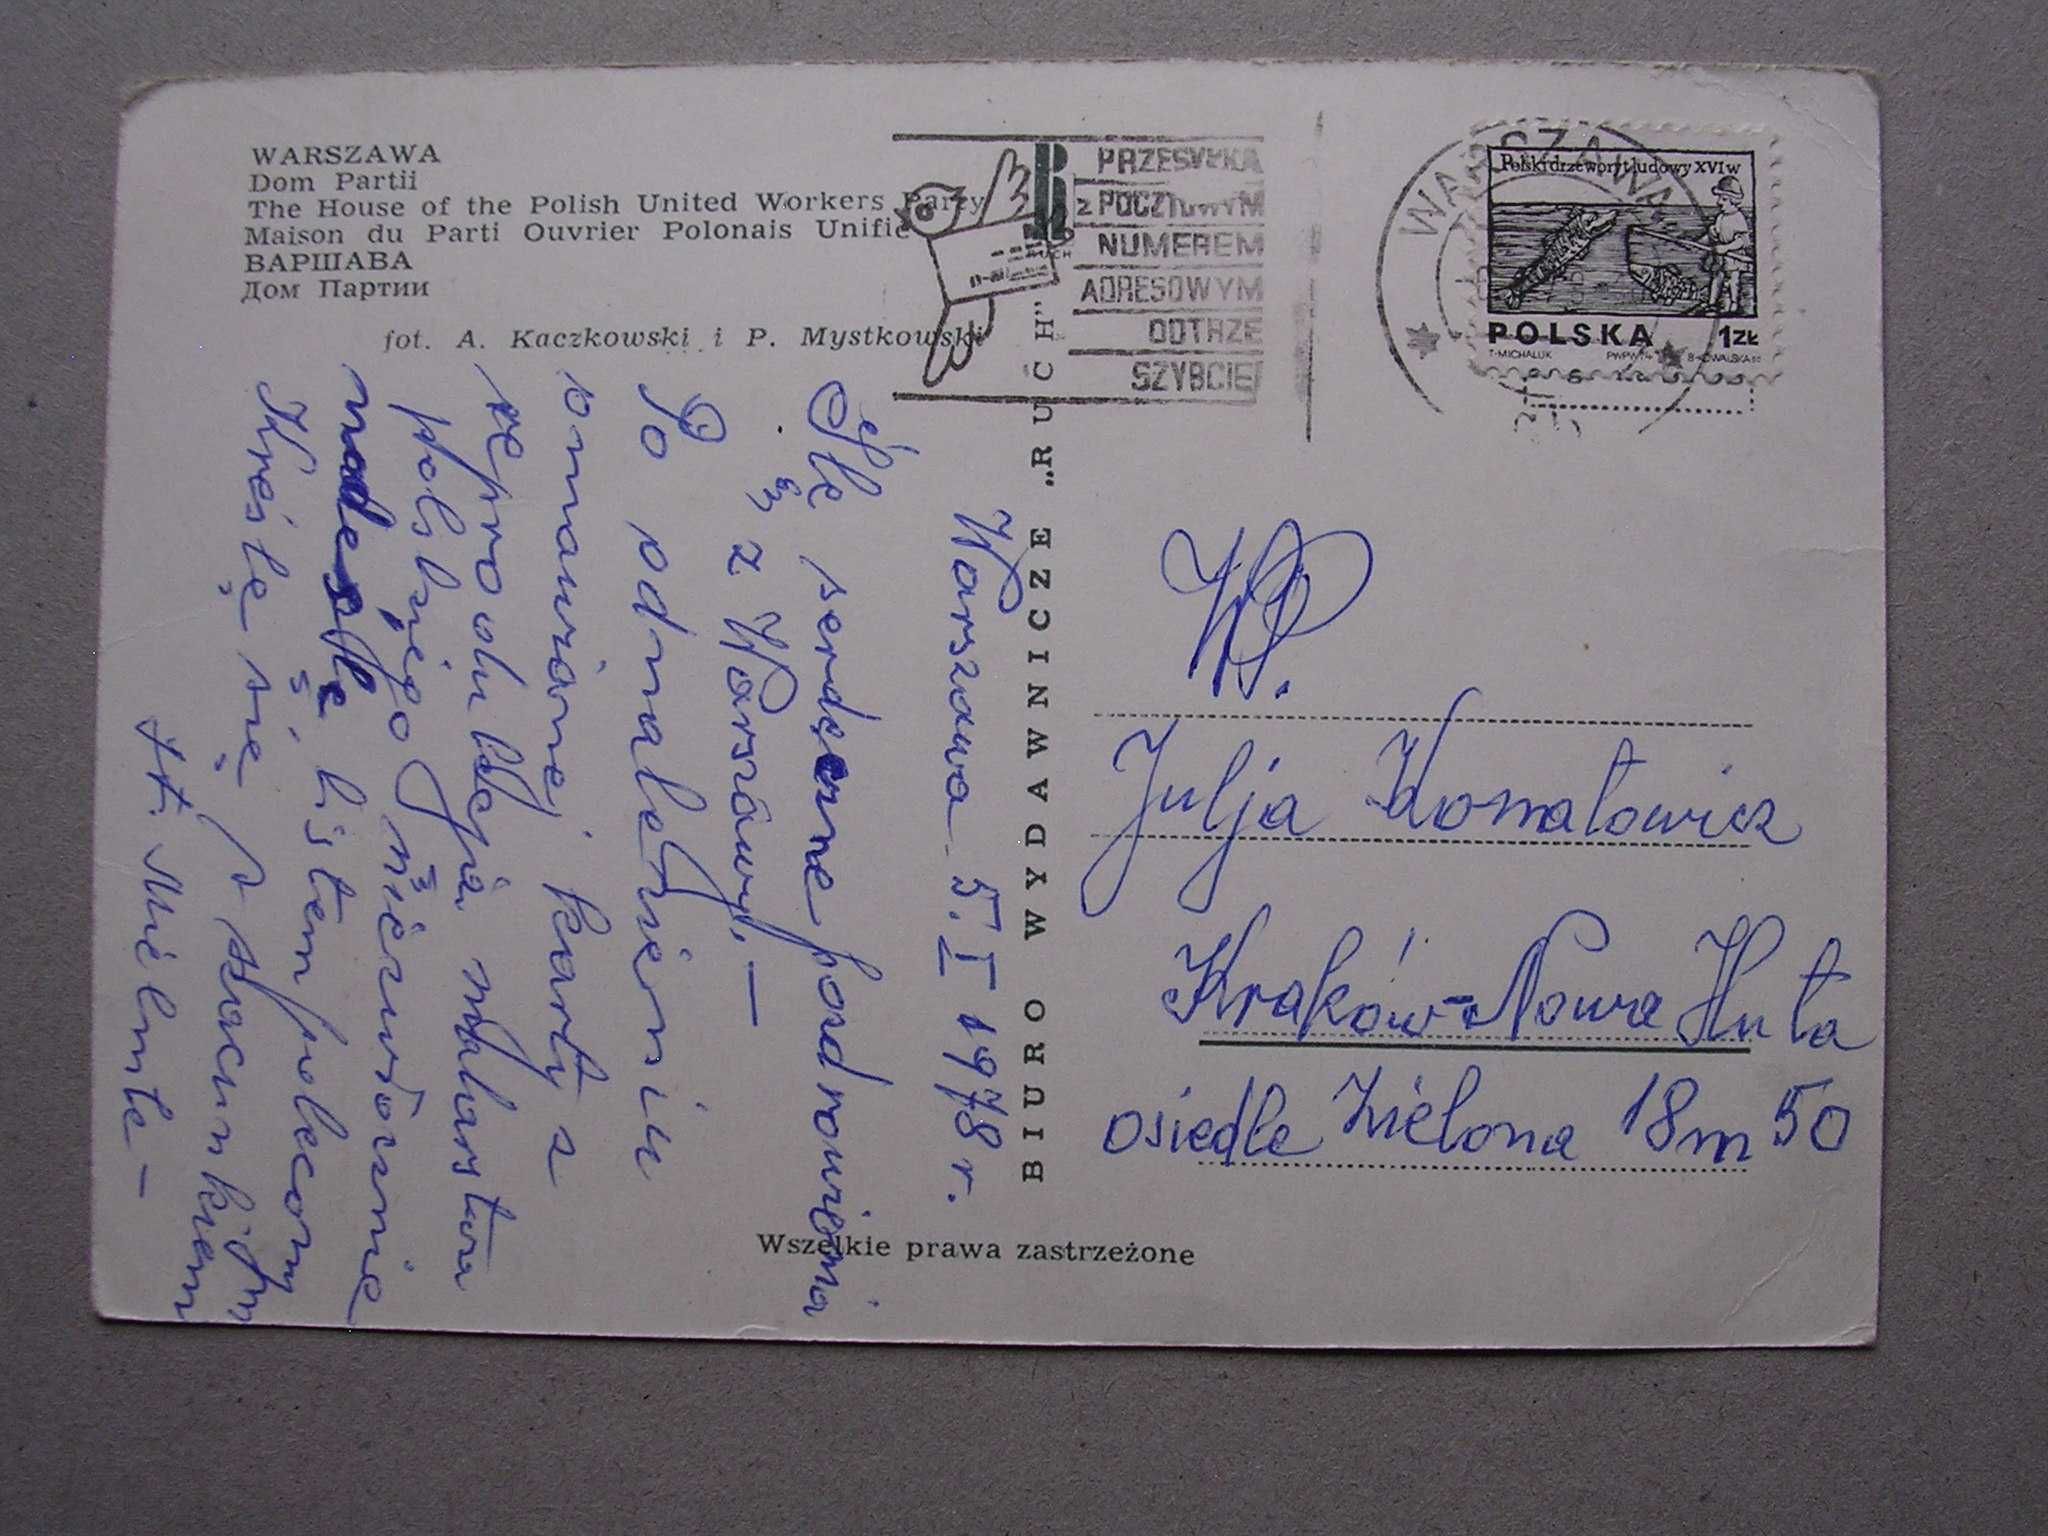 WARSZAWA
Dom Partii
The House of the Polish United Workers Party
Maison du Parti Ouvrier Polonais Unifié
ВАРШАВА
Дом Партии
fot. A. Kaczkowski i P. Mystkowski
RUCH
PRZESYŁKA
z POCZTOWYM
NUMEREM
ADRESOWYM
DOTRZE
SZYBCIEJ
WARSZAWA
Polski drzeworyt ludowy XVI w
POLSKA 1 ZŁ
T. MICHALUK PWPW 74 B. KOWALSKA
BIURO WYDAWNICZE „RUCH"
Warszawa 5.I 1978 r.
Ślę serdeczne pozdrowienia
z Warszawy, —
Po odnalezieniu
omawianej karty z
reprodukcją malarstwa
polskiego niezwłocznie
nadeślę listem poleconym
Kreślę się z szacunkiem
St. Mielnte —
WP.
Julja Komatowicz
Kraków-Nowa Huta
osiedle Zielona 18 m 50
Wszelkie prawa zastrzeżone